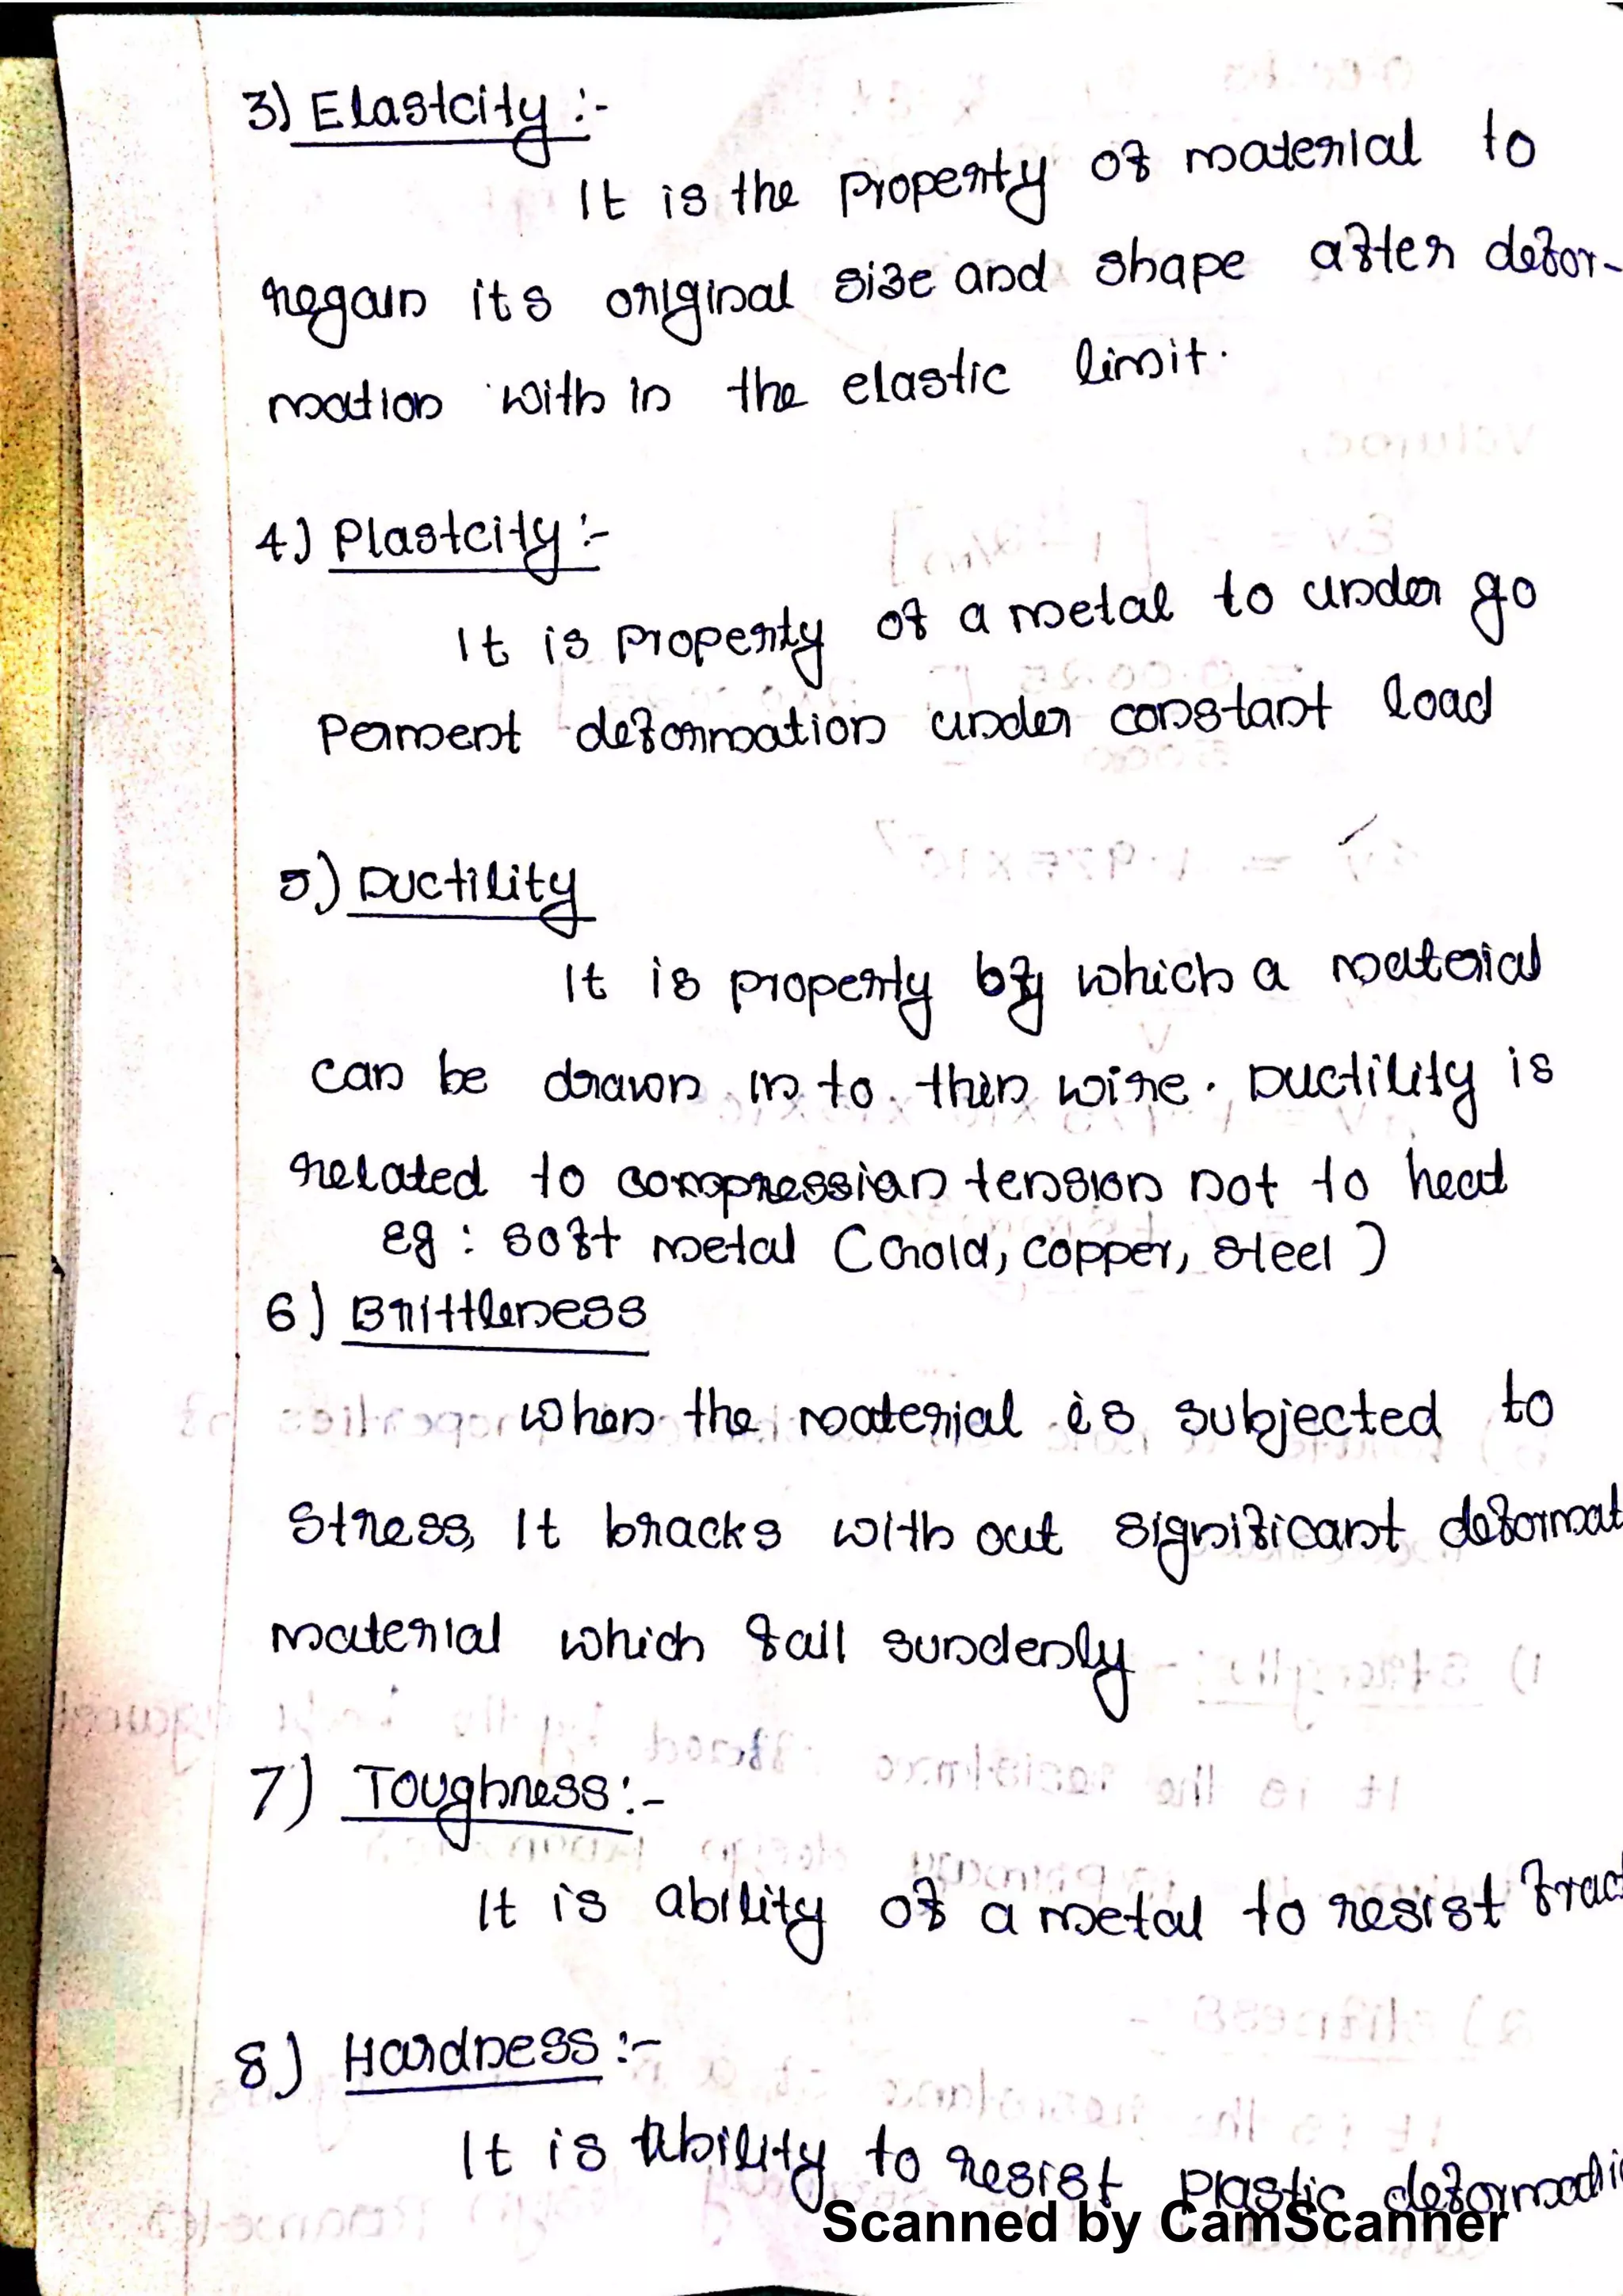 3) Elastcity :-
It is the property of material to
regain its original size and shape after defor-
mation with in the elastic limit.
4) Plastcity :-
It is property of a metal to under go
Perment deformation under constant load
5) Ductility
It is property by which a material
can be drawn in to thin wire. Ductility is
related to compression tension not to heat
eg : soft metal (Gold, copper, steel)
6) Brittleness
When the material is subjected to
stress, It bracks with out significant deformat
material which fall sundenly
7) Toughness :-
It is ability of a metal to resist fract
8) Hardness :-
It is Ability to resist plastic deformati
Scanned by CamScanner